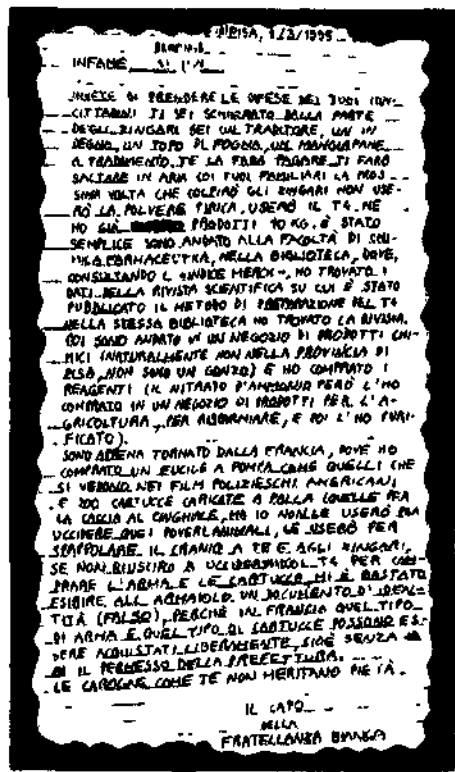 PISA, 1/3/1995
INFAME,
INVECE DI PRENDERE LE DIFESE DEI TUOI CON-
CITTADINI TI SEI SCHIERATO DALLA PARTE
DEGLI ZINGARI SEI UN TRADITORE, UN IN
DEGNO, UN TOPO DI FOGNA, UN MANGIAPANE
A TRADIMENTO. TE LA FARÒ PAGARE. TI FARÒ
SALTARE IN ARIA COI TUOI FAMILIARI LA PROS
SIMA VOLTA CHE COLPIRÒ GLI ZINGARI NON USE-
RÒ LA POLVERE PIRICA, USERÒ IL T4. NE
HO GIÀ PRODOTTI 10 KG. È STATO
SEMPLICE SONO ANDATO ALLA FACOLTÀ DI CHI-
MICA FARMACEUTICA, NELLA BIBLIOTECA, DOVE,
CONSULTANDO L'«INDICE MERCK», HO TROVATO I
DATI DELLA RIVISTA SCIENTIFICA SU CUI È STATO
PUBBLICATO IL METODO DI PREPARAZIONE DEL T4
NELLA STESSA BIBLIOTECA HO TROVATO LA RIVISTA.
POI SONO ANDATO IN UN NEGOZIO DI PRODOTTI CHI-
MICI (NATURALMENTE NON NELLA PROVINCIA DI
PISA, NON SONO UN GONZO) E HO COMPRATO I
REAGENTI (IL NITRATO D'AMMONIO PERÒ L'HO
COMPRATO IN UN NEGOZIO DI PRODOTTI PER L'A-
GRICOLTURA, PER RISPARMIARE, E POI L'HO PURI-
FICATO).
SONO APPENA TORNATO DALLA FRANCIA, DOVE HO
COMPRATO UN FUCILE A POMPA COME QUELLI CHE
SI VEDONO NEI FILM POLIZIESCHI AMERICANI
E 200 CARTUCCE CARICATE A PALLA (QUELLE PER
LA CACCIA AL CINGHIALE, MA IO NON LE USERÒ PER
UCCIDERE QUEI POVERI ANIMALI, LE USERÒ PER
SPAPPOLARE IL CRANIO A TE E AGLI ZINGARI,
SE NON RIUSCIRÒ A UCCIDERVI COL T4 PER COM-
PRARE L'ARMA E LE CARTUCCE MI È BASTATO
ESIBIRE ALL'ARMAIOLO UN DOCUMENTO D'IDEN-
TITÀ (FALSO), PERCHÉ IN FRANCIA QUEL TIPO
DI ARMA E QUEL TIPO DI CARTUCCE POSSONO ES-
SERE ACQUISTATI LIBERAMENTE, CIOÈ SENZA
IL PERMESSO DELLA PREFETTURA.
LE CAROGNE COME TE NON MERITANO PIETÀ.
IL CAPO
DELLA
FRATELLANZA BIANCA